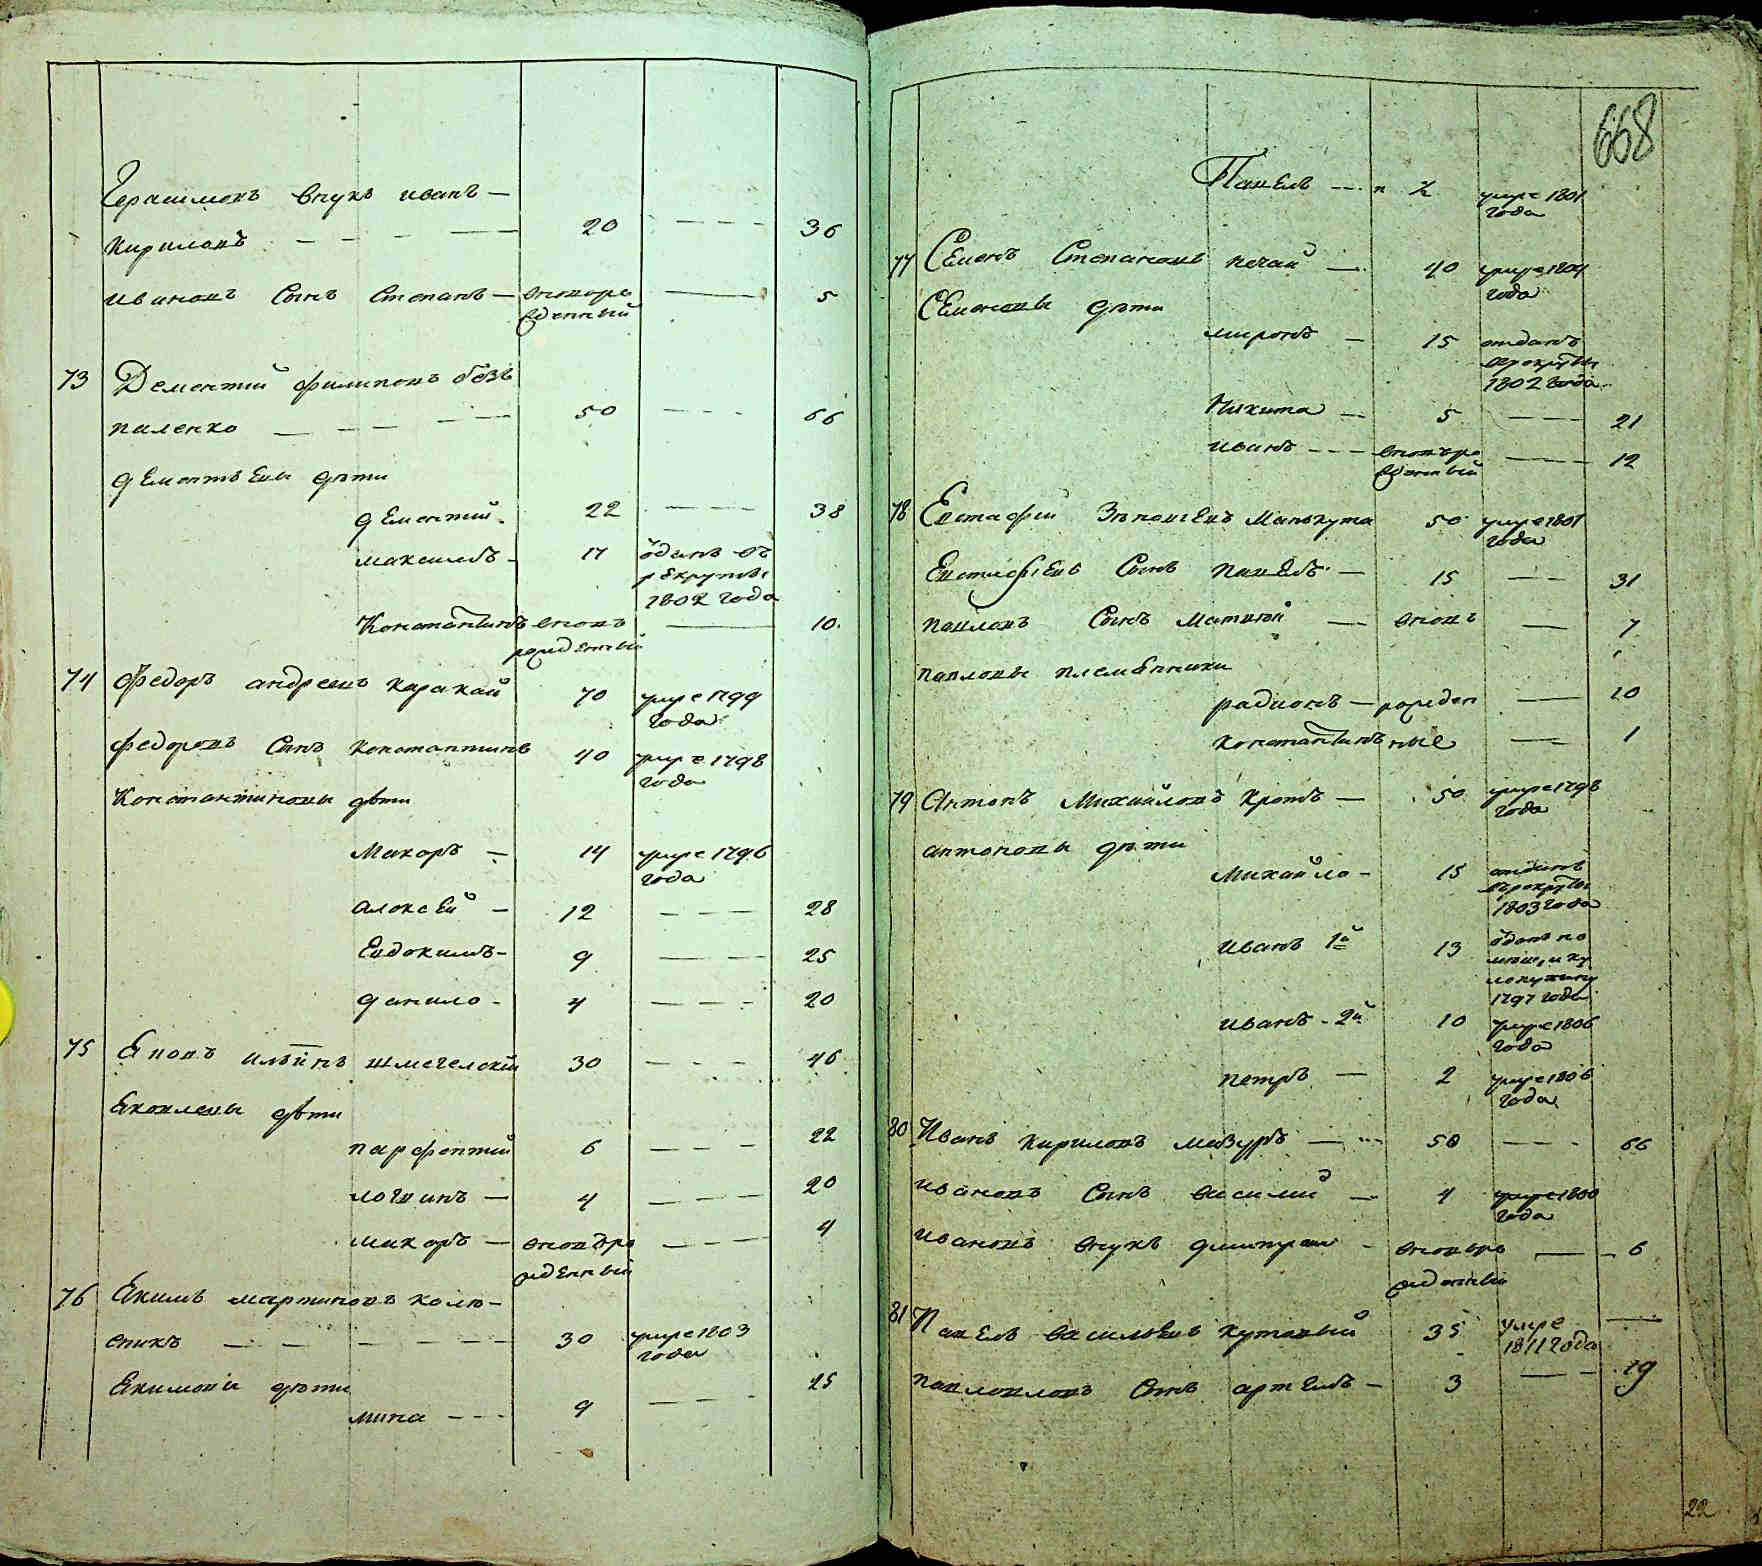 Герасимовъ внукъ иванъ —
Кириловъ — — — — 20 — — — 36
ивановъ Сынъ Степанъ — вновь ро — 5
жденный
73 Дементий филиповъ без
паленко — — — — 50 — — — 66
дементьевы дѣти
дементий 22 — — — 38
максимъ — 17 ѿданъ въ
рекруты
1802 года
Константинъ вновь — 10
рожденный
74 Федоръ андреевъ каракай 70 умре 1799
года
федоровъ Сынъ Константинъ 40 умре 1798
года
Константиновы дѣти
Макаръ — 14 умре 1796
года
алексей — 12 — — — 28
Евдокимъ — 9 — — — 25
данило — 4 — — — 20
75 Яковъ ильинъ шмегелский 30 — — — 46
Яковлевы дѣти
парфентий 6 — — — 22
логвинъ — 4 — — — 20
макаръ — вновь ро — — — 4
жденный
76 Якимъ мартиновъ колю-
сникъ — — — — — 30 умре 1803
года
Якимовы дѣти
мина — — — 9 — — — 25
668
Павелъ — — 2 умре 1801
года
77 Семенъ Степановъ нечай — 40 умре 1804
года
Семеновы дѣти
миронъ — 15 отданъ
в рекруты
1802 года
Никита — 5 — 21
иванъ — — — вновь ро — 12
жденный
78 Евстафий Зѣновиевъ Манжута 50 умре 1801
года
Евстафиевъ Сынъ павелъ — 15 — — 31
павловъ Сынъ Матвей — вновь — 7
павловы племенники
радионъ — рожден — 10
константинъ ные — 1
79 Антонъ Михайловъ Кротъ — 50 умре 1798
года
антоновы дѣти
Михайло — 15 отданъ
в рекруты
1803 года
иванъ 1й 13 ѿданъ по
1797 года
иванъ — 2й 10 умре 1806
года
петръ — 2 умре 1806
года
80 Иванъ кириловъ мазуръ — 50 — — — 66
ивановъ Сынъ василий — 4 умре 1800
года
ивановъ внукъ дмитрей — вновь ро — 6
жденный
81 Павелъ васильевъ кутовый 35 умре —
1811 года
павловловъ Сынъ артемъ — 3 — — 19
22